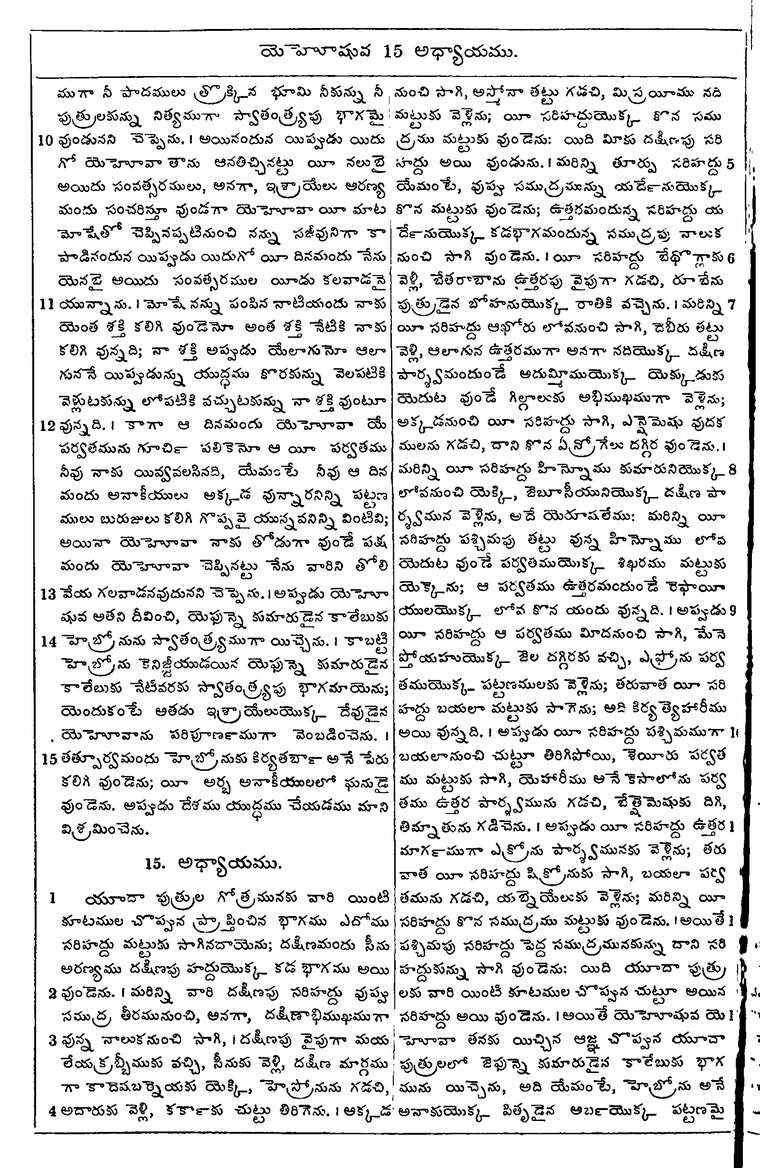 యెహోషువ 15 అధ్యాయము.
ముగా నీ పాదములు త్రొక్కిన భూమి నీకున్ను నీ
పుత్రులకున్ను నిత్యముగా స్వాతంత్ర్యపు భాగమై
10 వుండునని చెప్పెను. । అయినందున యిప్పుడు యిదు
గో యెహోవా తాను ఆనతిచ్చినట్టు యీ నలుబై
అయిదు సంవత్సరములు, అనగా, ఇశ్రాయేలు అరణ్య
మందు సంచరిస్తూ వుండగా యెహోవా యీ మాట
మోషేతో చెప్పినప్పటినుంచి నన్ను సజీవునిగా కా
పాడినందున యిప్పుడు యిదుగో యీ దినమందు నేను
యెనభై అయిదు సంవత్సరముల యీడు కలవాడనై
11 యున్నాను. । మోషే నన్ను పంపిన నాటియందు నాకు
యెంత శక్తి కలిగి వుండెనో అంత శక్తి నేటికి నాకు
కలిగి వున్నది; నా శక్తి అప్పుడు యేలాగునో ఆలా
గుననే యిప్పుడున్ను యుద్ధము కొరకున్ను వెలపటికి
వెళ్లుటకున్ను లోపటికి వచ్చుటకున్ను నా శక్తి వుంటూ
12 వున్నది. । కాగా ఆ దినమందు యెహోవా యే
పర్వతమును గూర్చి పలికెనో ఆ యీ పర్వతము
నీవు నాకు యివ్వవలసినది, యేమంటే నీవు ఆ దిన
మందు అనాకీయులు అక్కడ వున్నారనిన్ని పట్టణ
ములు బురుజులు కలిగి గొప్పవై యున్నవనిన్ని వింటివి;
అయినా యెహోవా నాకు తోడుగా వుండే పక్ష
మందు యెహోవా చెప్పినట్టు నేను వారిని తోలి
13 వేయ గలవాడనవుదునని చెప్పెను. । అప్పుడు యెహో
షువ అతని దీవించి, యెఫున్నె కుమారుడైన కాలేబుకు
14 హెబ్రోనును స్వాతంత్ర్యముగా యిచ్చెను. । కాబట్టి
హెబ్రోను కెనిజ్జీయుడయిన యెఫున్నె కుమారుడైన
కాలేబుకు నేటివరకు స్వాతంత్ర్యపు భాగమాయెను;
యెందుకంటే అతడు ఇశ్రాయేలుయొక్క దేవుడైన
యెహోవాను పరిపూర్ణముగా వెంబడించెను. ।
15 తత్పూర్వమందు హెబ్రోనుకు కిర్యతర్బా అనే పేరు
కలిగి వుండెను; యీ అర్బ అనాకీయులలో ఘనుడై
వుండెను. అప్పుడు దేశము యుద్ధము చేయడము మాని
విశ్రమించెను.
15. అధ్యాయము.
1 యూదా పుత్రుల గోత్రమునకు వారి యింటి
కూటముల చొప్పున ప్రాప్తించిన భాగము ఎదోము
సరిహద్దు మట్టుకు సాగినదాయెను; దక్షిణమందు సీను
అరణ్యము దక్షిణపు హద్దుయొక్క కడ భాగము అయి
2 వుండెను. । మరిన్ని వారి దక్షిణపు సరిహద్దు వుప్పు
సముద్ర తీరమునుంచి, అనగా, దక్షిణాభిముఖముగా
3 వున్న నాలుకనుంచి సాగి, । దక్షిణపు వైపుగా మయ
లేయక్రబ్బీముకు వచ్చి, సీనుకు వెళ్లి, దక్షిణ మార్గము
గా కాదెషబర్నెయకు యెక్కి, హెస్రోనును గడచి,
4 అదారుకు వెళ్లి, కర్కాకు చుట్టు తిరిగెను. । అక్కడ
నుంచి సాగి, అస్మోనా తట్టు గడచి, మిస్రయీము నది
మట్టుకు వెళ్లెను; యీ సరిహద్దుయొక్క కొన సము
ద్రము మట్టుకు వుండెను: యిది మీకు దక్షిణపు సరి
హద్దు అయి వుండును. । మరిన్ని తూర్పు సరిహద్దు 5
యేమంటే, వుప్పు సముద్రమున్ను యర్దేనుయొక్క
కొన మట్టుకు వుండెను; ఉత్తరమందున్న సరిహద్దు య
ర్దేనుయొక్క కడభాగమందున్న సముద్రపు నాలుక
నుంచి సాగి వుండెను. । యీ సరిహద్దు బేథొగ్లాకు 6
వెళ్లి, బేతరాబాను ఉత్తరపు వైపుగా గడచి, రూబేను
పుత్రుడైన బోహనుయొక్క రాతికి వచ్చెను. । మరిన్ని 7
యీ సరిహద్దు ఆఖోరు లోవనుంచి సాగి, దెబీరు తట్టు
వెళ్లి, ఆలాగున ఉత్తరముగా అనగా నదియొక్క దక్షిణ
పార్శ్వమందుండే అదుమ్మిముయొక్క యెక్కుడుకు
యెదుట వుండే గిల్గాలుకు అభిముఖముగా వెళ్లెను;
అక్కడనుంచి యీ సరిహద్దు సాగి, ఎన్షెమెషు వుదక
ములను గడచి, దాని కొన ఏన్రోగేలు దగ్గిర వుండెను. ।
మరిన్ని యీ సరిహద్దు హిన్నోము కుమారునియొక్క 8
లోవనుంచి యెక్కి, జెబూసీయునియొక్క దక్షిణ పా
ర్శ్వమున వెళ్లెను, అదే యెరూషలేము: మరిన్ని యీ
సరిహద్దు పశ్చిమపు తట్టు వున్న హిన్నోము లోవ
యెదుట వుండే పర్వతముయొక్క శిఖరము మట్టుకు
యెక్కెను; ఆ పర్వతము ఉత్తరమందుండే రెఫాయీ
యులయొక్క లోవ కొన యందు వున్నది. । అప్పుడు 9
యీ సరిహద్దు ఆ పర్వతము మీదనుంచి సాగి, మేనె
ప్తోయహుయొక్క జెల దగ్గిరకు వచ్చి, ఎఫ్రోను పర్వ
తముయొక్క పట్టణములకు వెళ్లెను; తరువాత యీ సరి
హద్దు బయలా మట్టుకు సాగెను; అది కిర్యత్యెహారీము
అయి వున్నది. । అప్పుడు యీ సరిహద్దు పశ్చిమముగా 1
బయలానుంచి చుట్టూ తిరిగిపోయి, శెయీరు పర్వత
ము మట్టుకు సాగి, యెహారీము అనే కెసాలోను పర్వ
తము ఉత్తర పార్శ్వమును గడచి, బేత్షెమెషుకు దిగి,
తిమ్నాతును గడిచెను. । అప్పుడు యీ సరిహద్దు ఉత్తర 1
మార్గముగా ఎక్రోను పార్శ్వమునకు వెళ్లెను; తరు
వాత యీ సరిహద్దు షిక్రోనుకు సాగి, బయలా పర్వ
తమును గడచి, యబ్నెయేలుకు వెళ్లెను; మరిన్ని యీ
సరిహద్దు కొన సముద్రము మట్టుకు వుండెను. । అయితే 1
పశ్చిమపు సరిహద్దు పెద్ద సముద్రమునకున్ను దాని సరి
హద్దుకున్ను సాగి వుండెను: యిది యూదా పుత్రు
లకు వారి యింటి కూటముల చొప్పున చుట్టూ అయిన
సరిహద్దు అయి వుండెను. । అయితే యెహోషువ యె 1
హోవా తనకు యిచ్చిన ఆజ్ఞ చొప్పున యూదా
పుత్రులలో జెఫున్నె కుమారుడైన కాలేబుకు భాగ
మును యిచ్చెను, అది యేమంటే, హెబ్రోను అనే
అనాకుయొక్క పితృడైన ఆర్బయొక్క పట్టణమై